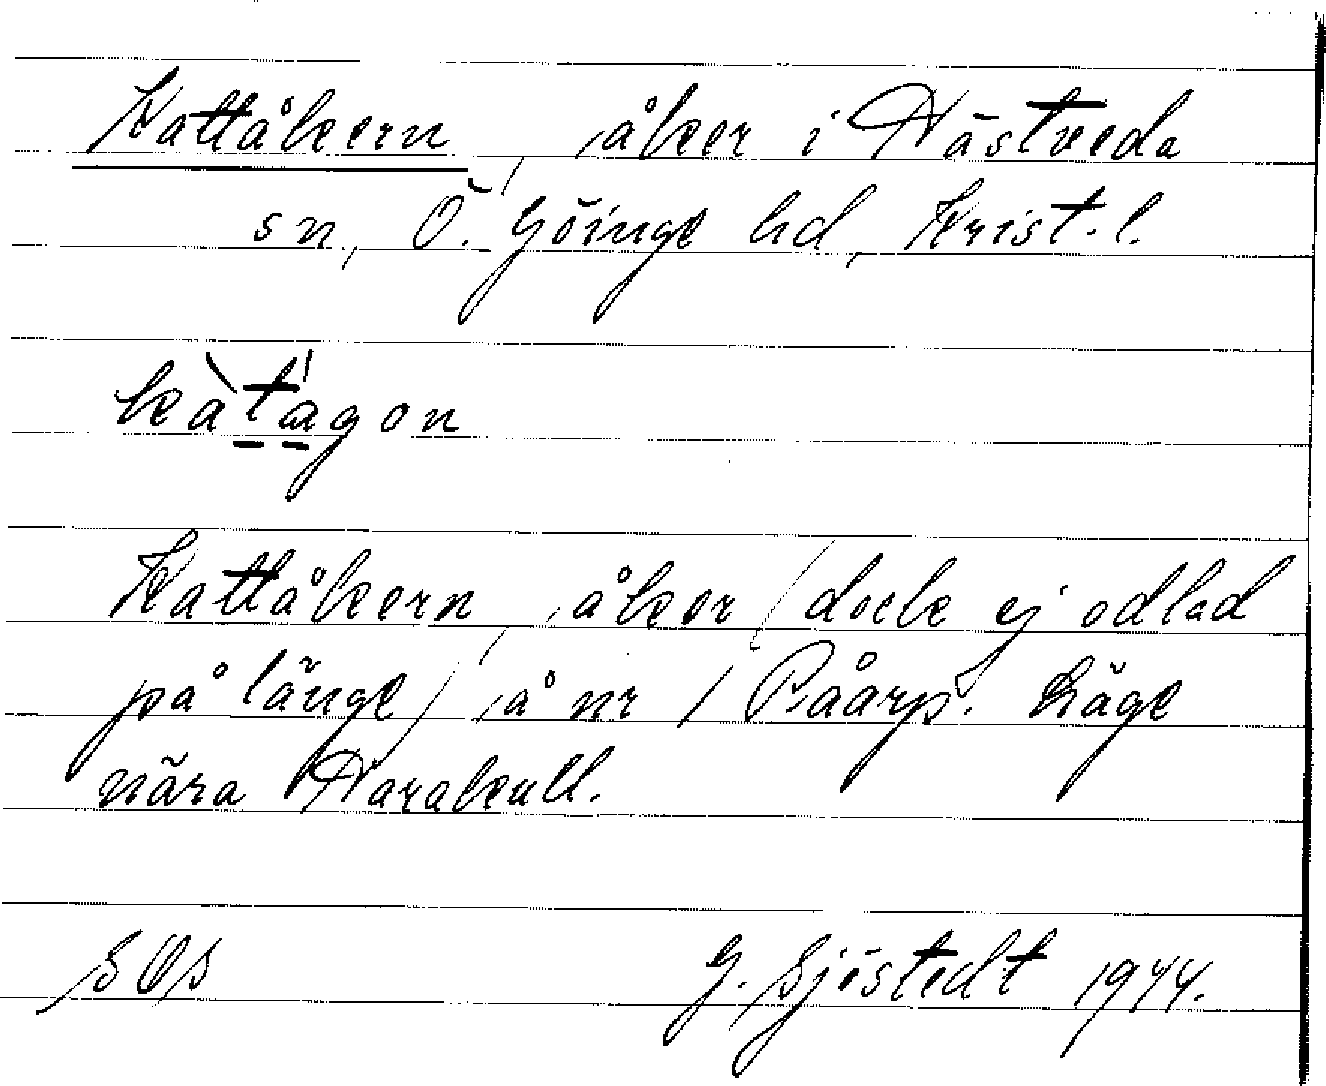 Kattåkern, åker i Hästveda
sn, Ö. Göinge hd, Krist. l.
kàtagon
Kattåkern, åker (dock ej odlad
på länge) å nr 1 Råarp. Läge
nära Harakull.
G. Sjöstedt 1944.